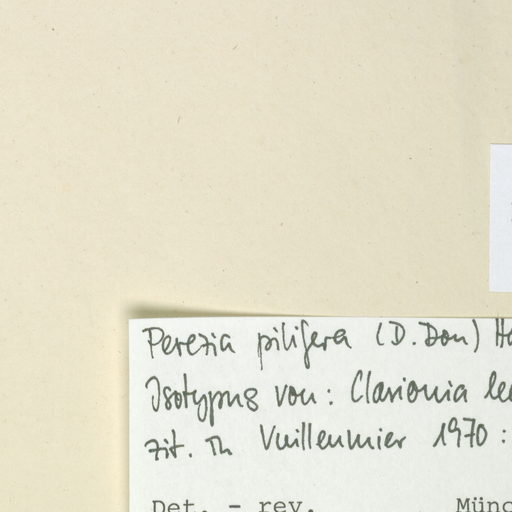 Perezia pilifera (D. Don) Ho
Isotypus von: Clarionia le
zit. in Vuilleumier 1970:
Det. - rev. Münc